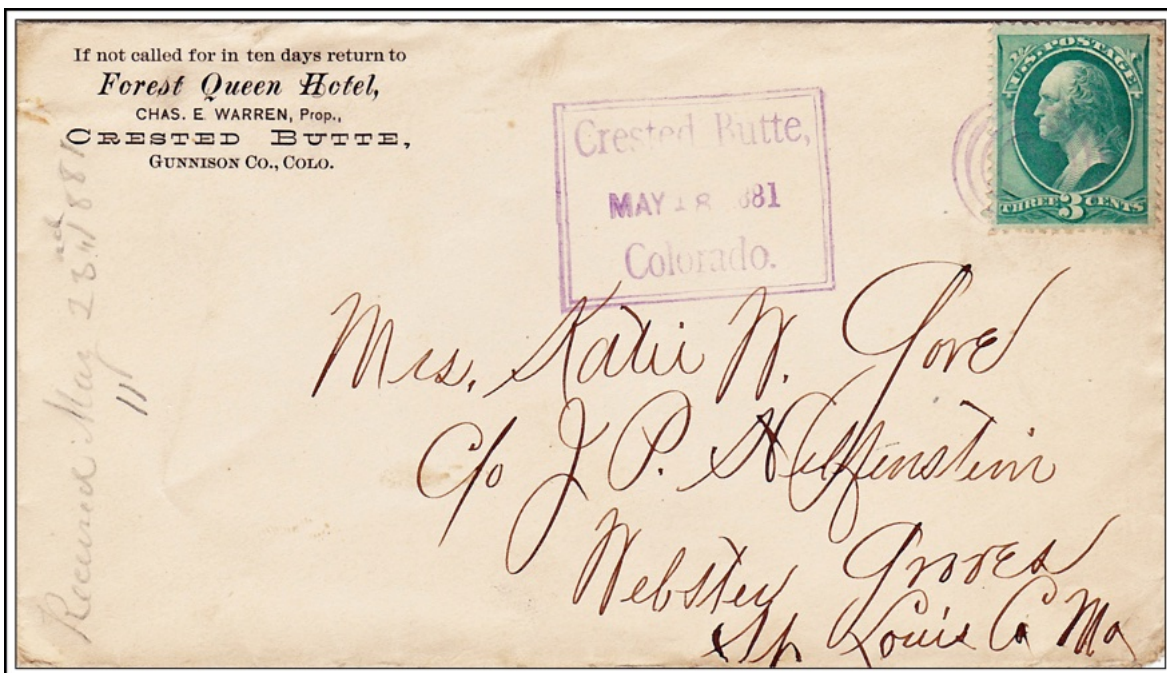 If not called for in ten days return to
Forest Queen Hotel,
CHAS. E. WARREN, Prop.,
CRESTED BUTTE,
GUNNISON CO., COLO.
Crested Butte,
MAY 18 881
Colorado.
U.S. POSTAGE
THREE 3 CENTS
Mrs. Katie W. Gore
c/o J P. Helfenstein
Webster Groves
St Louis Co Mo
Received May 23rd 1881